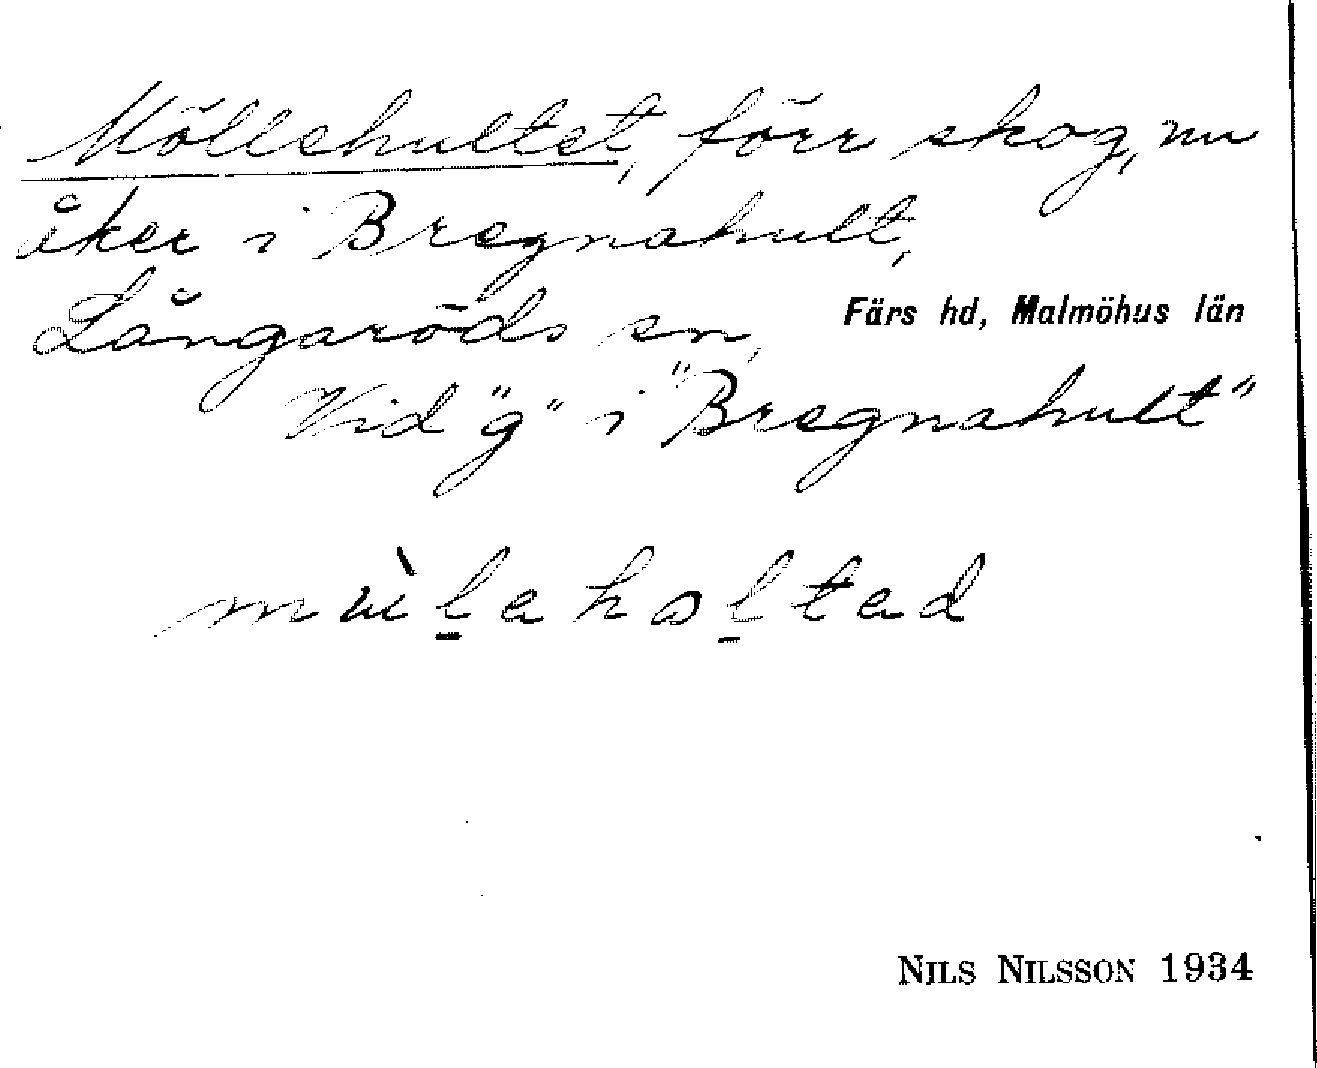 Möllehultet, förr skog, nu
åker i Bregnahult,
Långaröds sn, Färs hd, Malmöhus län
Vid "g" i "Bregnahult"
NILS NILSSON 1934